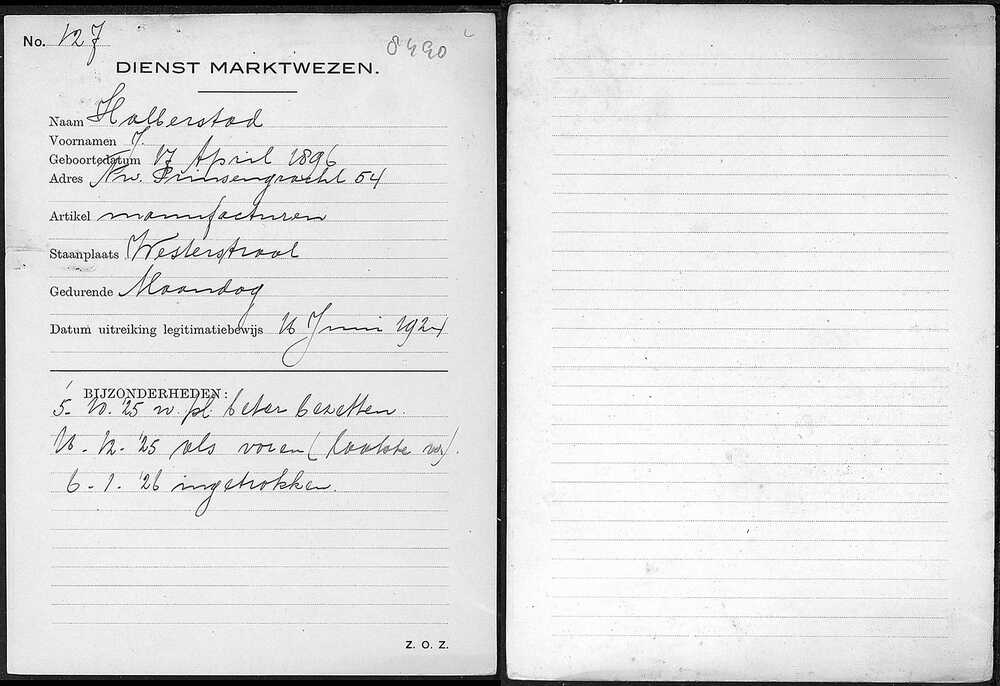 No. 127 8490
DIENST MARKTWEZEN.
Naam Halberstad
Voornamen J.
Geboortedatum 17 April 1896
Adres Nw. Prinsengracht 54
Artikel manufacturen
Staanplaats Westerstraat
Gedurende Maandag
Datum uitreiking legitimatiebewijs 16 Juni 1924
BIJZONDERHEDEN:
5-10.'25 pl. beter bezetten.
16-12.'25 als voren (laatste
6-1.'26 ingetrokken.
Z. O. Z.